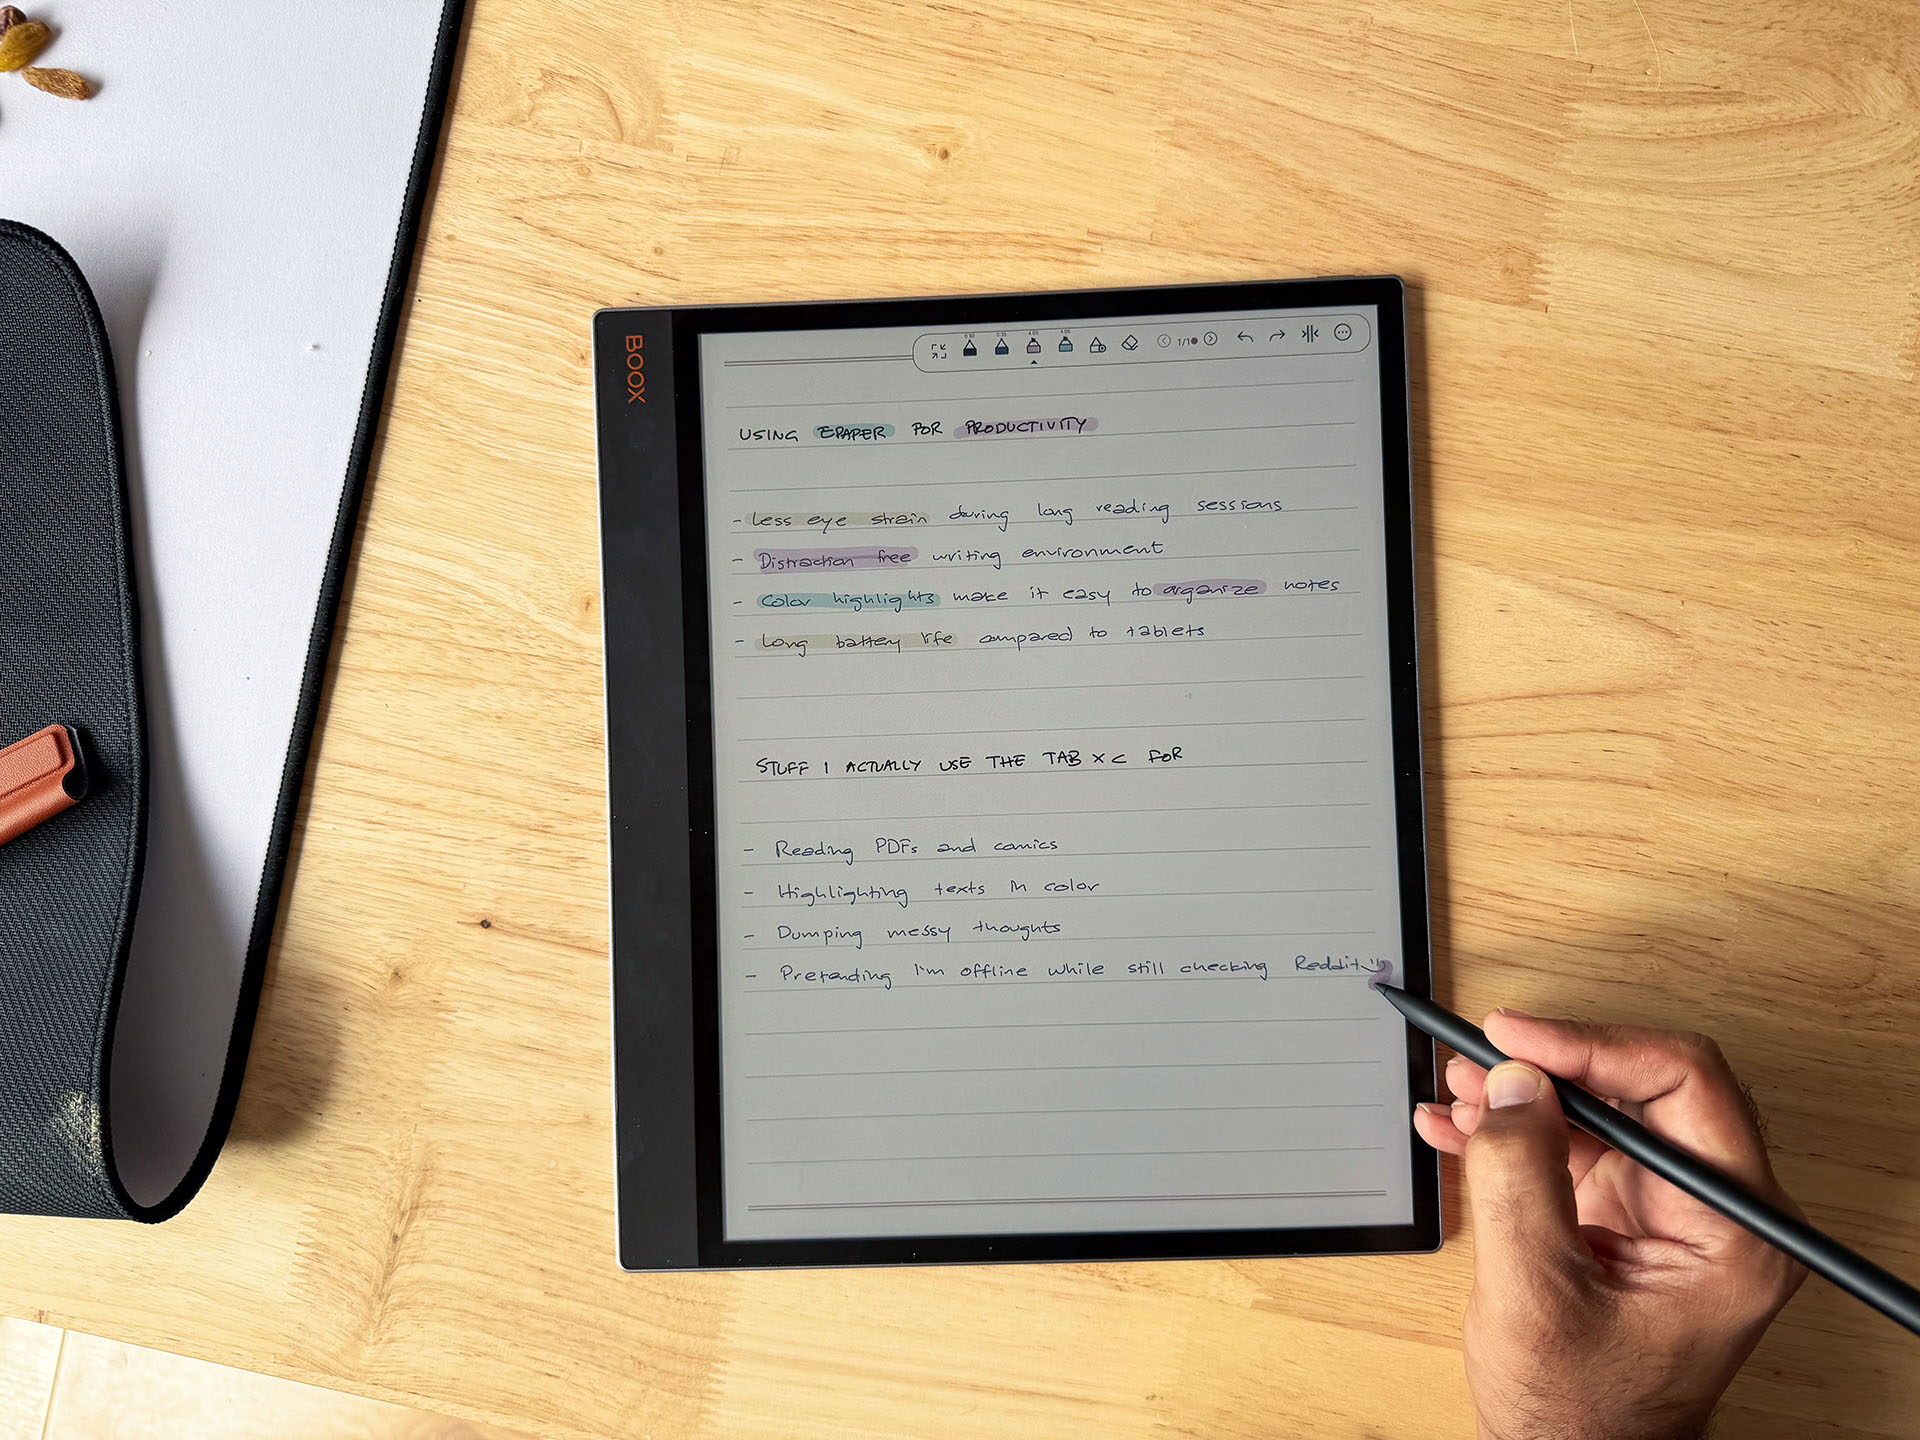 BOOX
0.50 0.35 4.05 4.05
1/1
USING EPAPER FOR PRODUCTIVITY
- Less eye strain during long reading sessions
- Distraction free writing environment
- Color highlights make it easy to organize notes
- Long battery life compared to tablets
STUFF I ACTUALLY USE THE TAB X C FOR
- Reading PDFs and comics
- Highlighting texts in color
- Dumping messy thoughts
- Pretending I'm offline while still checking Reddit :)